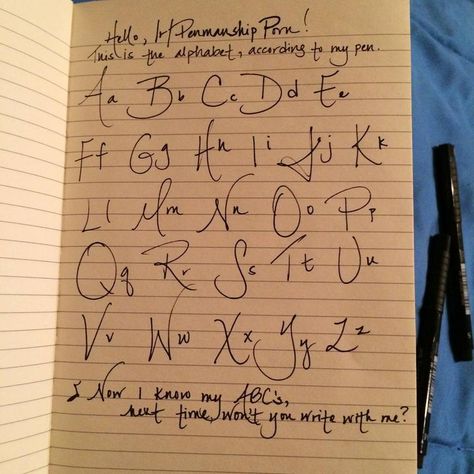 Hello, /r/Penmanship Porn!
This is the alphabet, according to my pen.
Aa Bb Cc Dd Ee
Ff Gg Hh Ii Jj Kk
Ll Mm Nn Oo Pp
Qq Rr Ss Tt Uu
Vv Ww Xx Yy Zz
♪ Now I know my ABC's,
next time, won't you write with me?